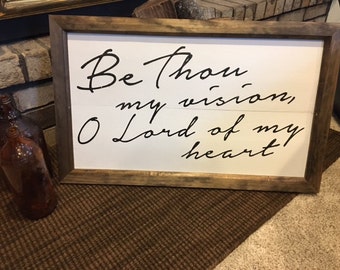 Be Thou
my vision,
O Lord of my
heart